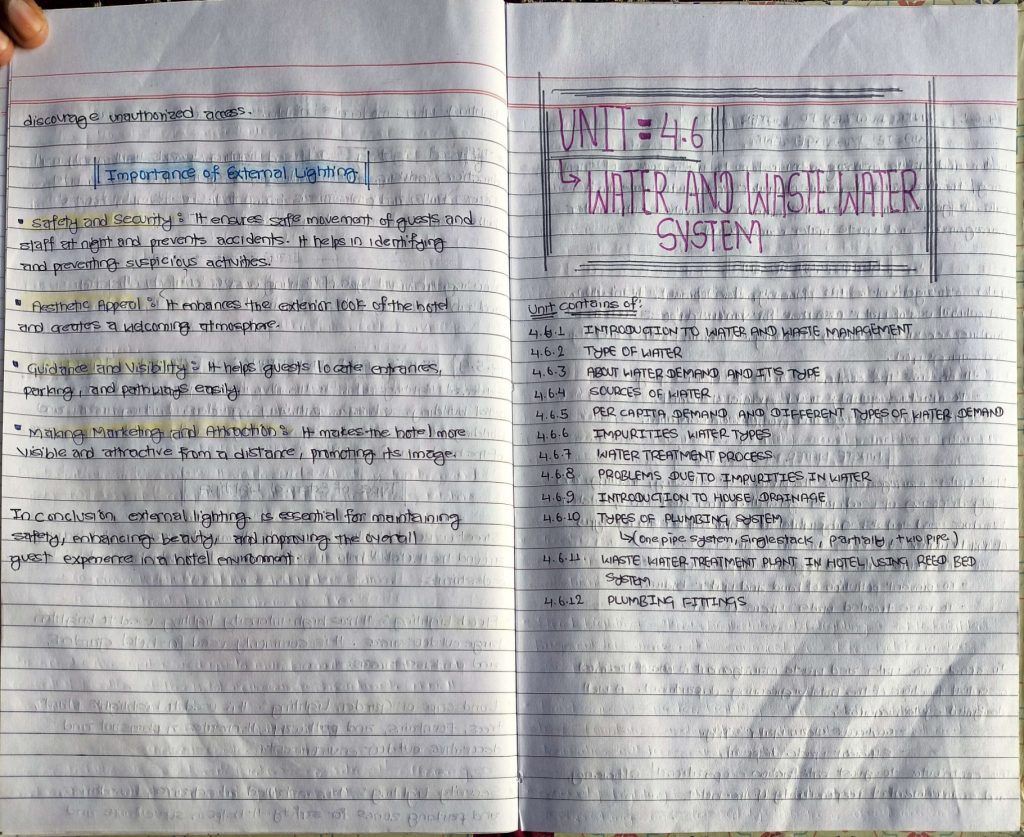 discourage unauthorized access.
Importance of External Lighting
• Safety and Security : It ensures safe movement of guests and
staff at night and prevents accidents. It helps in identifying
and preventing suspicious activities.
• Aesthetic Appeal : It enhances the exterior look of the hotel
and creates a welcoming atmosphere.
• Guidance and Visibility : It helps guests locate entrances,
parking, and pathways easily.
• Making Marketing and Attraction : It makes the hotel more
visible and attractive from a distance, promoting its image.
In conclusion, external lighting is essential for maintaining
safety, enhancing beauty, and improving the overall
guest experience in a hotel environment.
UNIT = 4.6
↳ WATER AND WASTE WATER
SYSTEM
Unit contains of:
4.6.1 INTRODUCTION TO WATER AND WASTE MANAGEMENT
4.6.2 TYPE OF WATER
4.6.3 ABOUT WATER DEMAND AND ITS TYPE
4.6.4 SOURCES OF WATER
4.6.5 PER CAPITA DEMAND AND DIFFERENT TYPES OF WATER DEMAND
4.6.6 IMPURITIES WATER TYPES
4.6.7 WATER TREATMENT PROCESS
4.6.8 PROBLEMS DUE TO IMPURITIES IN WATER
4.6.9 INTRODUCTION TO HOUSE DRAINAGE
4.6.10 TYPES OF PLUMBING SYSTEM
↳ (one pipe system, single stack, partially, two pipe)
4.6.11 WASTE WATER TREATMENT PLANT IN HOTEL USING REED BED
SYSTEM
4.6.12 PLUMBING FITTINGS